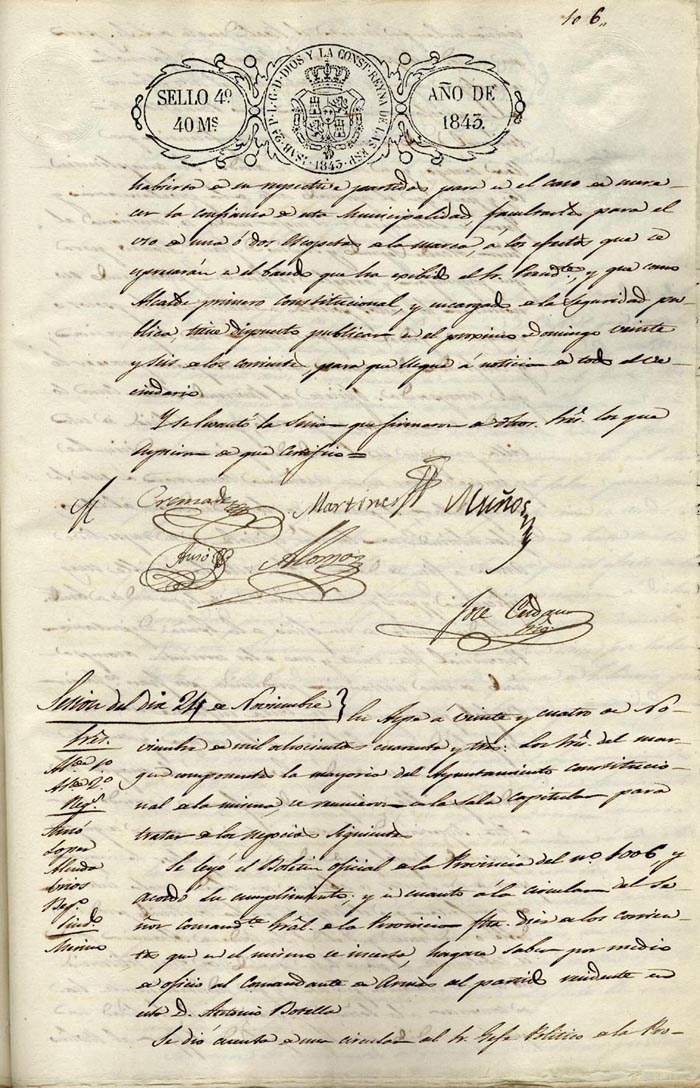 106,,
SELLO 4º.
40 Ms.
YSAB. 2ª P. L. G. D. DIOS Y LA CONST. REYNA DE LAS ESP.
1843.
AÑO DE
1843.
para en el caso de mere-
cer la confianza de esta Municipalidad, para el
uso de una ó dos Escopetas de la marca, á los efectos que se
espresarán en el bando que ha el Sr. y que como
Alcalde primero Constitucional, y encargado de la Seguridad pu-
blica, tiene dispuesto publicar en el proximo Domingo veinte
y seis de los corrientes, para que llegue á noticia de todo el ve-
cindario
Y se levantó la Sesion que firmaron de dichos Sres. los que
de que Certifico =
Cremades Martinez Muños
Ausó Alonso
José Cerdan
Srio
Sesion del dia 24 de Noviembre } En Aspe á veinte y cuatro de No-
Sres.
viembre de mil ochocientos cuarenta y tres: Los Sres. del mar-
Alcde. 1º
gen componentes la mayoria del Ayuntamiento constitucio-
Alcde. 2º
nal de la misma, se reunieron en la sala Capitular para
Regs.
tratar de los negocios siguientes
Ausó
Lopez
Se leyó el Boletin oficial de la Provincia del nº. 1006, y
acordó su cumplimiento; y en cuanto á la circular del Se-
ñor Comandte. Gral. de la Provincia fha. diez de los corrien-
Sindo.
tes que en el mismo se incerta, hagase saber por medio
de oficio al Comandante de Armas del partido residente en
esta D. Antonio Botella
Se dió cuenta de una circular del Sr. Gefe Politico de la Pro-